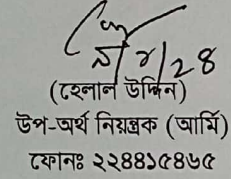 (হেলাল উদ্দিন)
উপ-অর্থ নিয়ন্ত্রক (আর্মি)
ফোনঃ ২২৪৪১৫৪৮৫